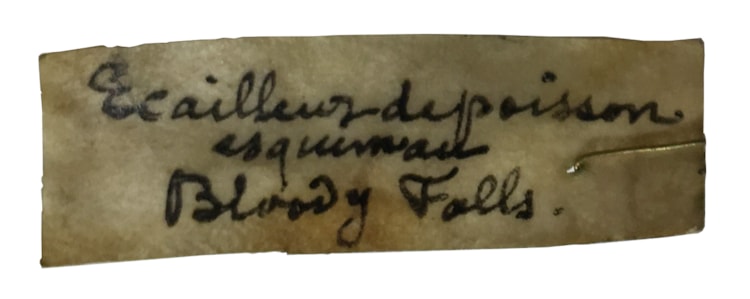 Ecailleur de poisson
esquimau
Bloody Falls.